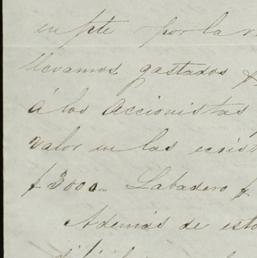 en pte por la
llevamos gastados $
á los Accionistas
valor en las exist
$ 3000.. Labadero $
Además de esto